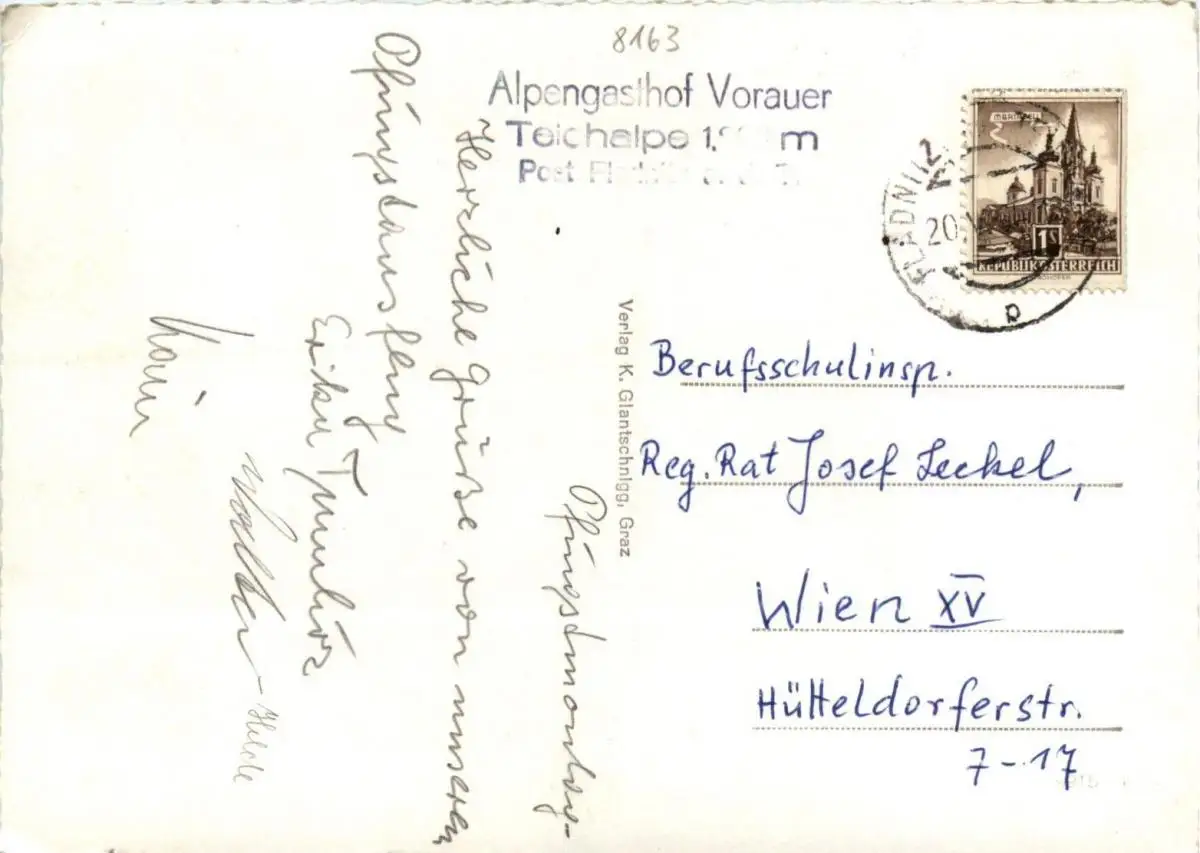 8163
Alpengasthof Vorauer
Teichalpe m
Post
MARIAZELL
1S
REPUBLIK ÖSTERREICH
FLADNITZ
20.
Verlag K. Glantschnigg, Graz
Pfingstmontag
Herrliche Grüße von unserem
Pfingstausflug
Erika
Walter
Hilde
Berufsschulinsp.
Reg. Rat Josef Leckel,
Wien XV
Hütteldorferstr.
7-17